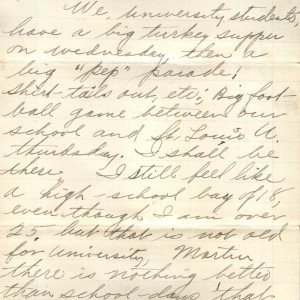 We, University students,
have a big turkey supper
on Wednesday, then a
big "pep" parade,
shirt-tails out, etc; Big foot-
ball game between our
school and St Louis U.
Thursday. I shall be
there. I still feel like
a high-school boy of 18
even though I am over
25 but that is not old
for University, Martin
there is nothing better
than school-days that